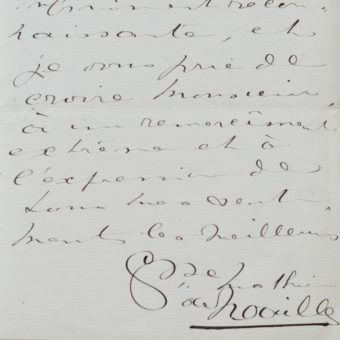 infiniment recon-
naissante, et
je vous prie de
croire Monsieur,
à un remerciment
extrême et à
l'expression de
tous mes senti-
ments les meilleurs
Csse Mathieu
de Noailles